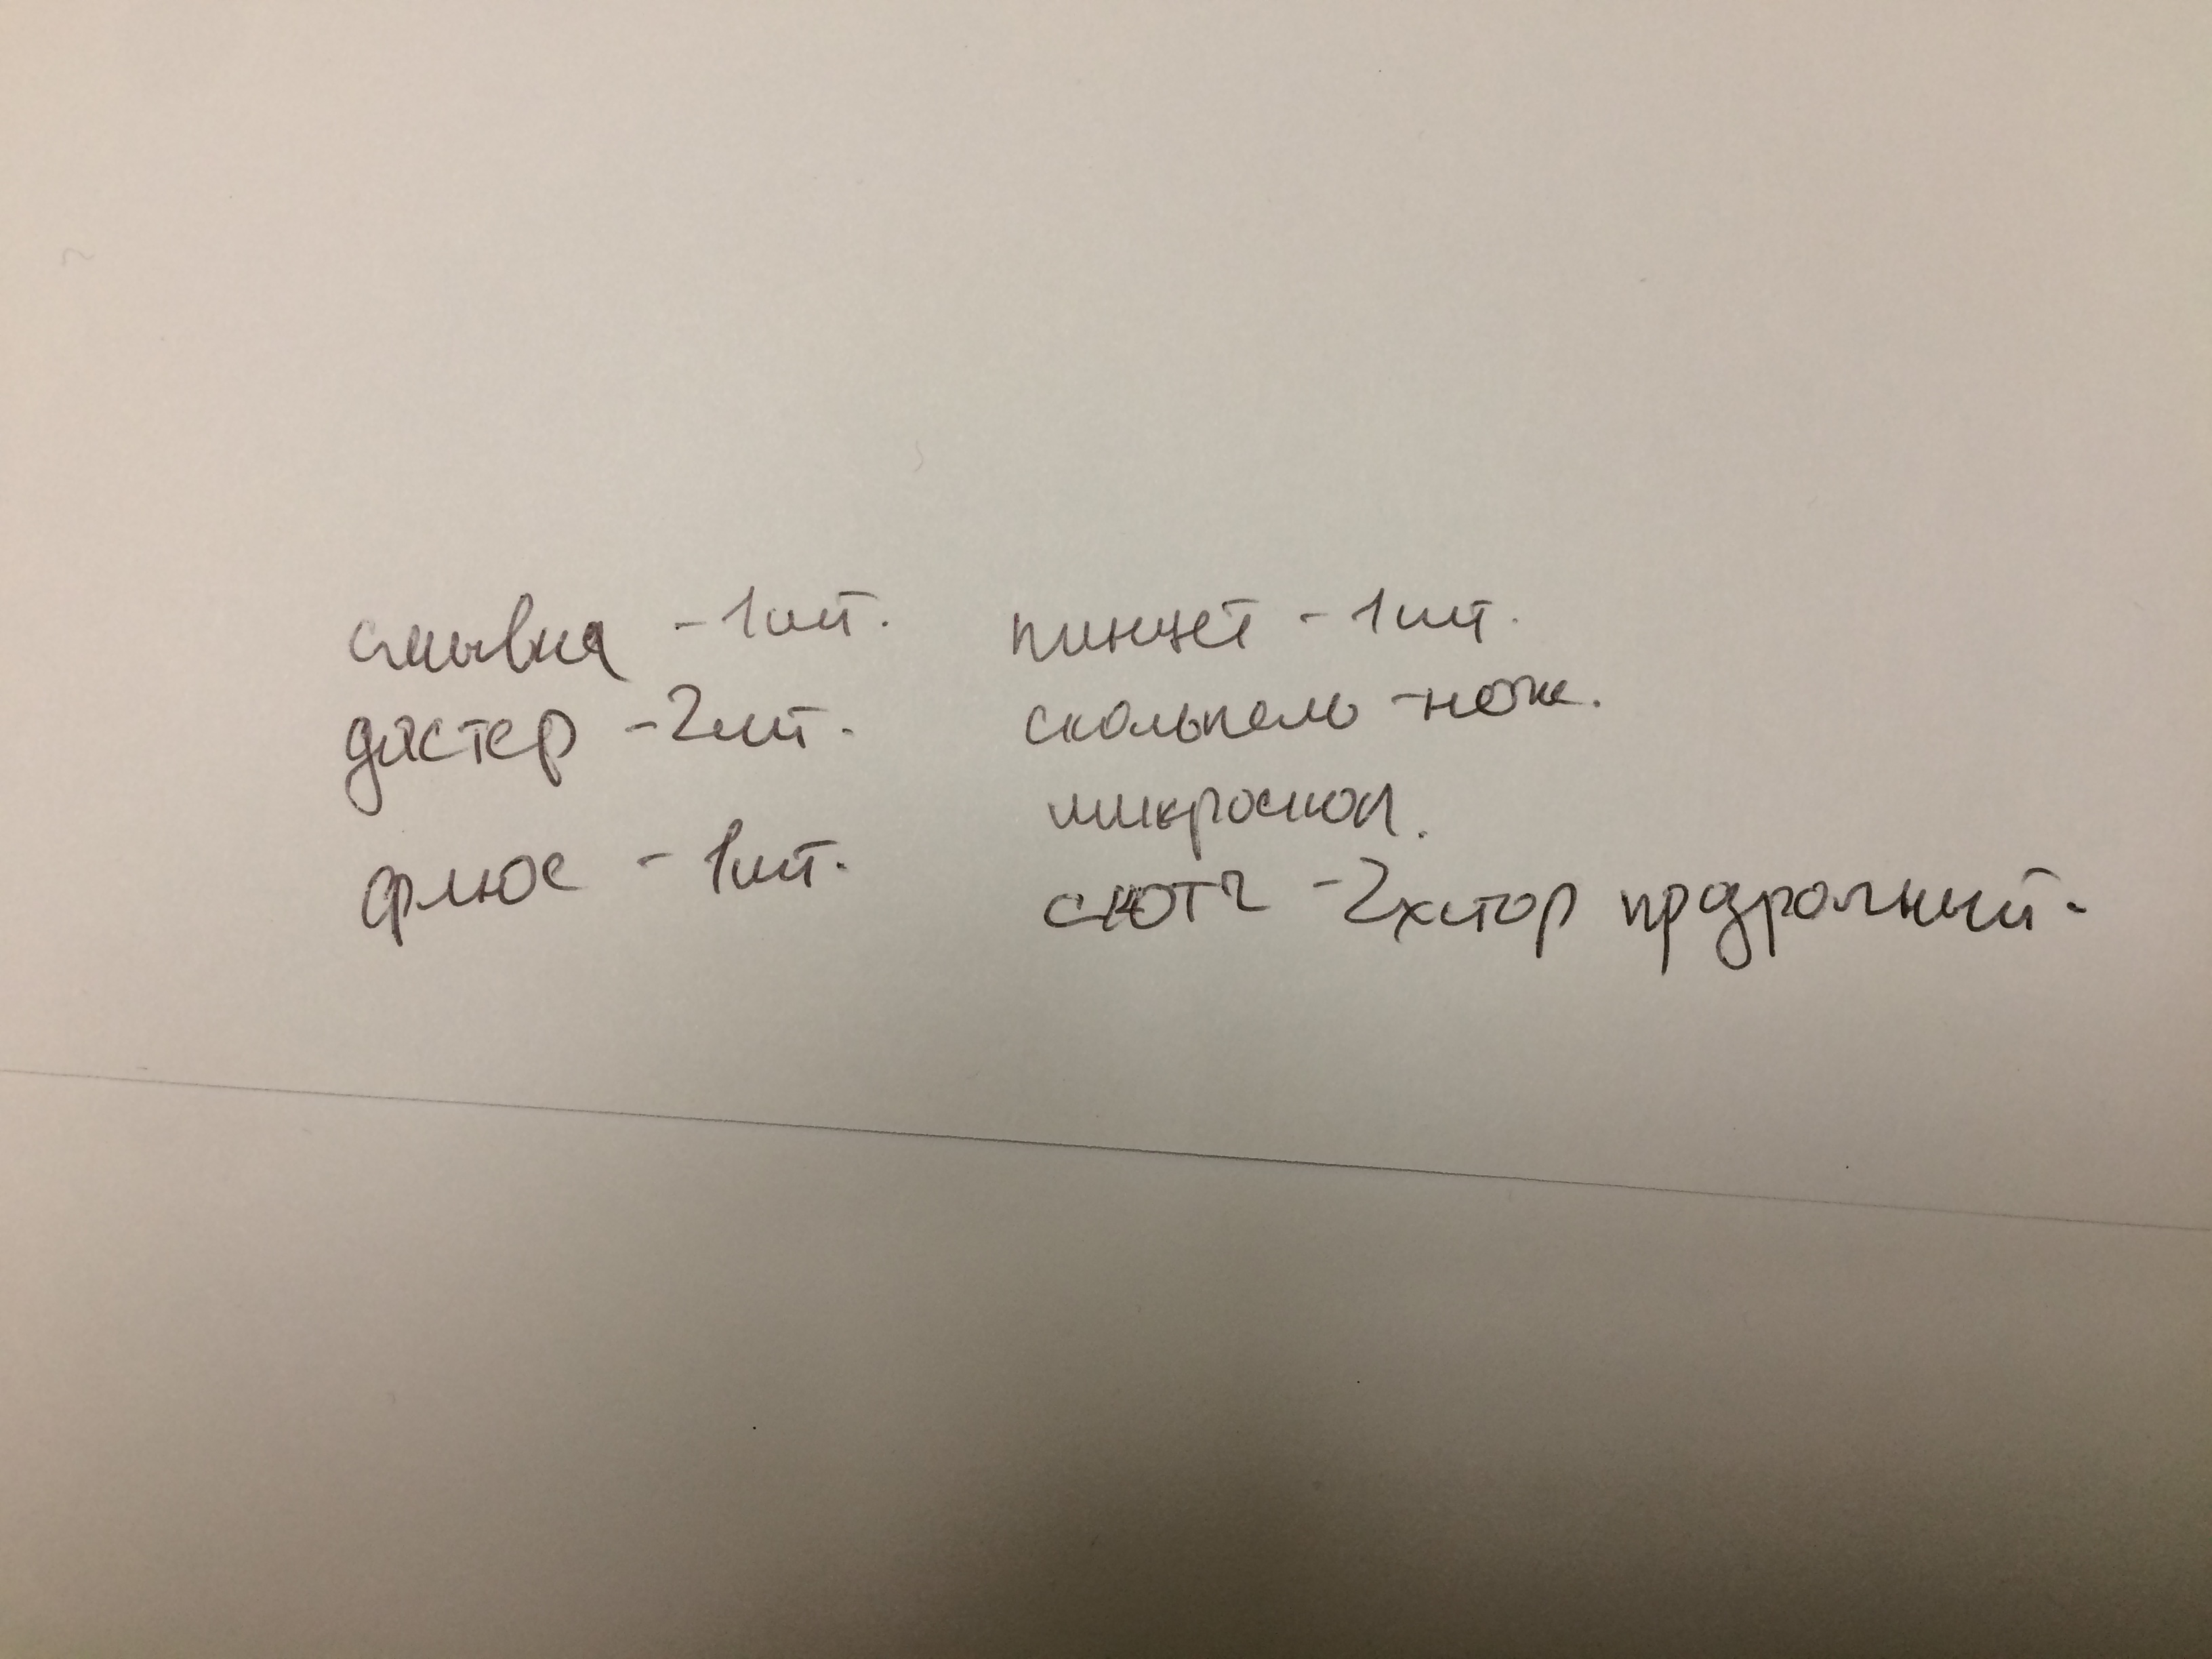 смывка - 1 шт.
дастер - 2 шт.
флюс - 1 шт.
пинцет - 1 шт.
скольпель - нож.
микроскоп.
скотч - 2хстор прдрочный.